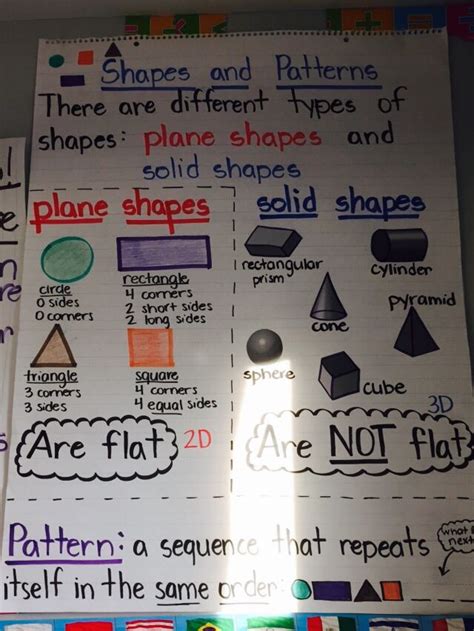 Shapes and Patterns
There are different types of
shapes: plane shapes and
solid shapes
plane shapes
circle
0 sides
0 corners
rectangle
4 corners
2 short sides
2 long sides
triangle
3 corners
3 sides
square
4 corners
4 equal sides
Are flat
2D
solid shapes
rectangular
prism
cylinder
cone
pyramid
sphere
cube
3D
Are NOT flat
Pattern: a sequence that repeats
itself in the same order:
what
next